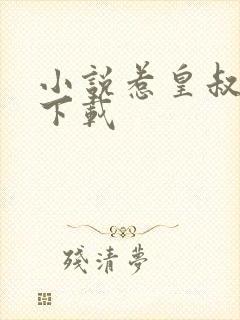 小說惹皇叔
下載
殘清夢